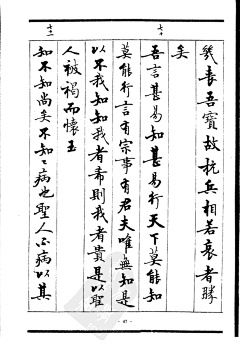 幾喪吾寶故抗兵相若哀者勝
矣
七十
吾言甚易知甚易行天下莫能知
莫能行言有宗事有君夫唯無知是
以不我知知我者希則我者貴是以聖
人被褐而懷玉
七十一
知不知尚矣不知〻病也聖人不病以其
- 47 -